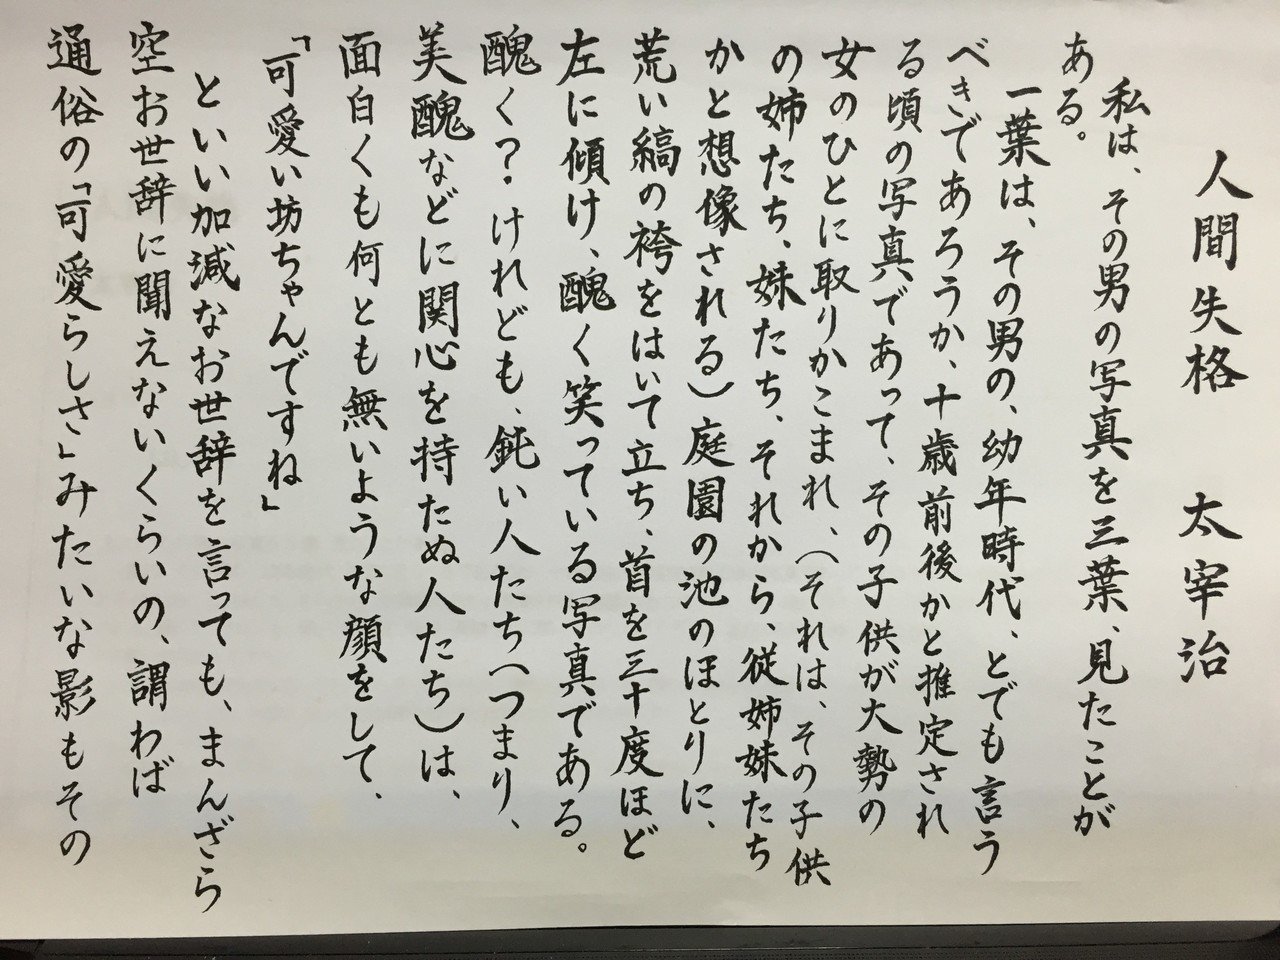 人間失格　太宰治
私は、その男の写真を三葉、見たことが
ある。
一葉は、その男の、幼年時代、とでも言う
べきであろうか、十歳前後かと推定され
る頃の写真であって、その子供が大勢の
女のひとに取りかこまれ、（それは、その子供
の姉たち、妹たち、それから、従姉妹たち
かと想像される）庭園の池のほとりに、
荒い縞の袴をはいて立ち、首を三十度ほど
左に傾け、醜く笑っている写真である。
醜く？けれども、鈍い人たち（つまり、
美醜などに関心を持たぬ人たち）は、
面白くも何とも無いような顔をして、
「可愛い坊ちゃんですね」
といい加減なお世辞を言っても、まんざら
空お世辞に聞えないくらいの、謂わば
通俗の「可愛らしさ」みたいな影もその